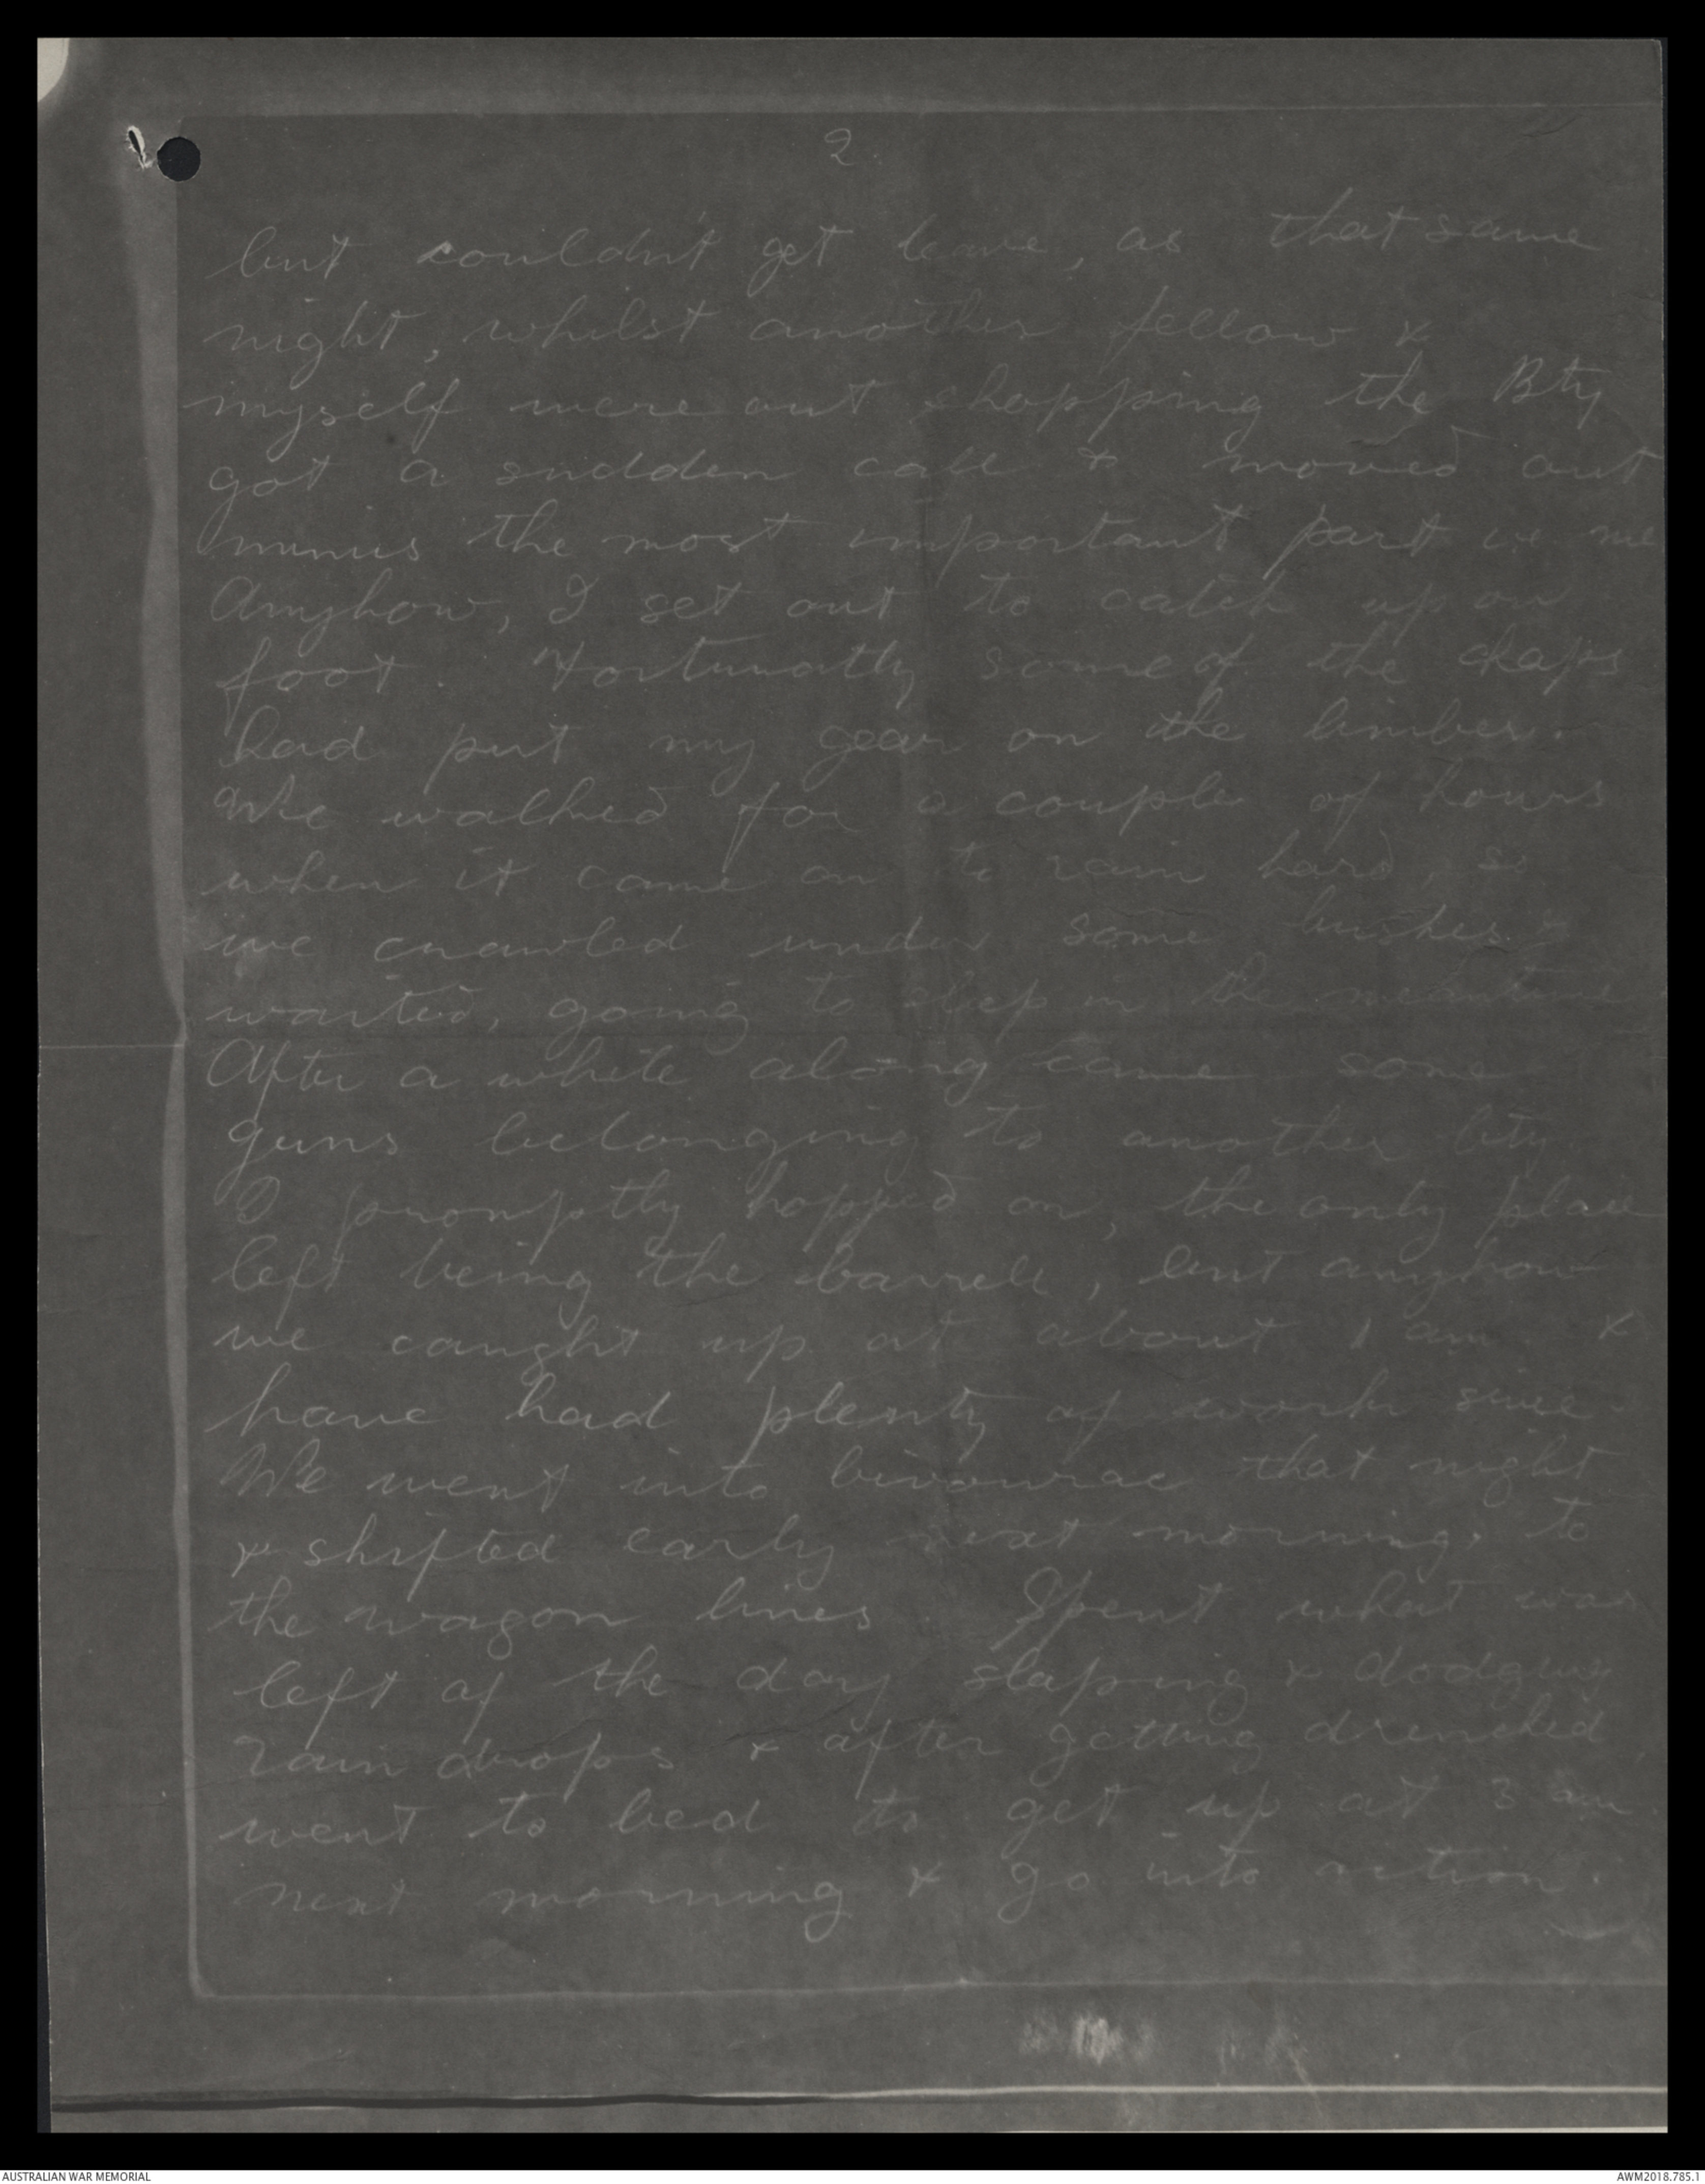 2.
but couldn't get leave, as that same
night, whilst another fellow &
myself were out shopping the Bty
got a sudden call & moved out
minus the most important part ie me
Anyhow, I set out to catch up on
foot. Fortunatly some of the chaps
had put my gear on the limber.
We walked for a couple of hours
when it came on to rain hard, so
we crawled under some bushes &
waited, going to sleep in the meantime
After a while along came some
guns belonging to another bty.
I promptly hopped on, the only place
left being the barrell, but anyhow
we caught up at about 1 am &
have had plenty of work since.
We went into bivouac that night
& shifted early next morning, to
the wagon lines. Spent what was
left of the day slaping & dodging
rain drops & after getting drenched,
went to bed to get up at 3 am.
next morning & go into action.
AUSTRALIAN WAR MEMORIAL
AWM2018.785.1